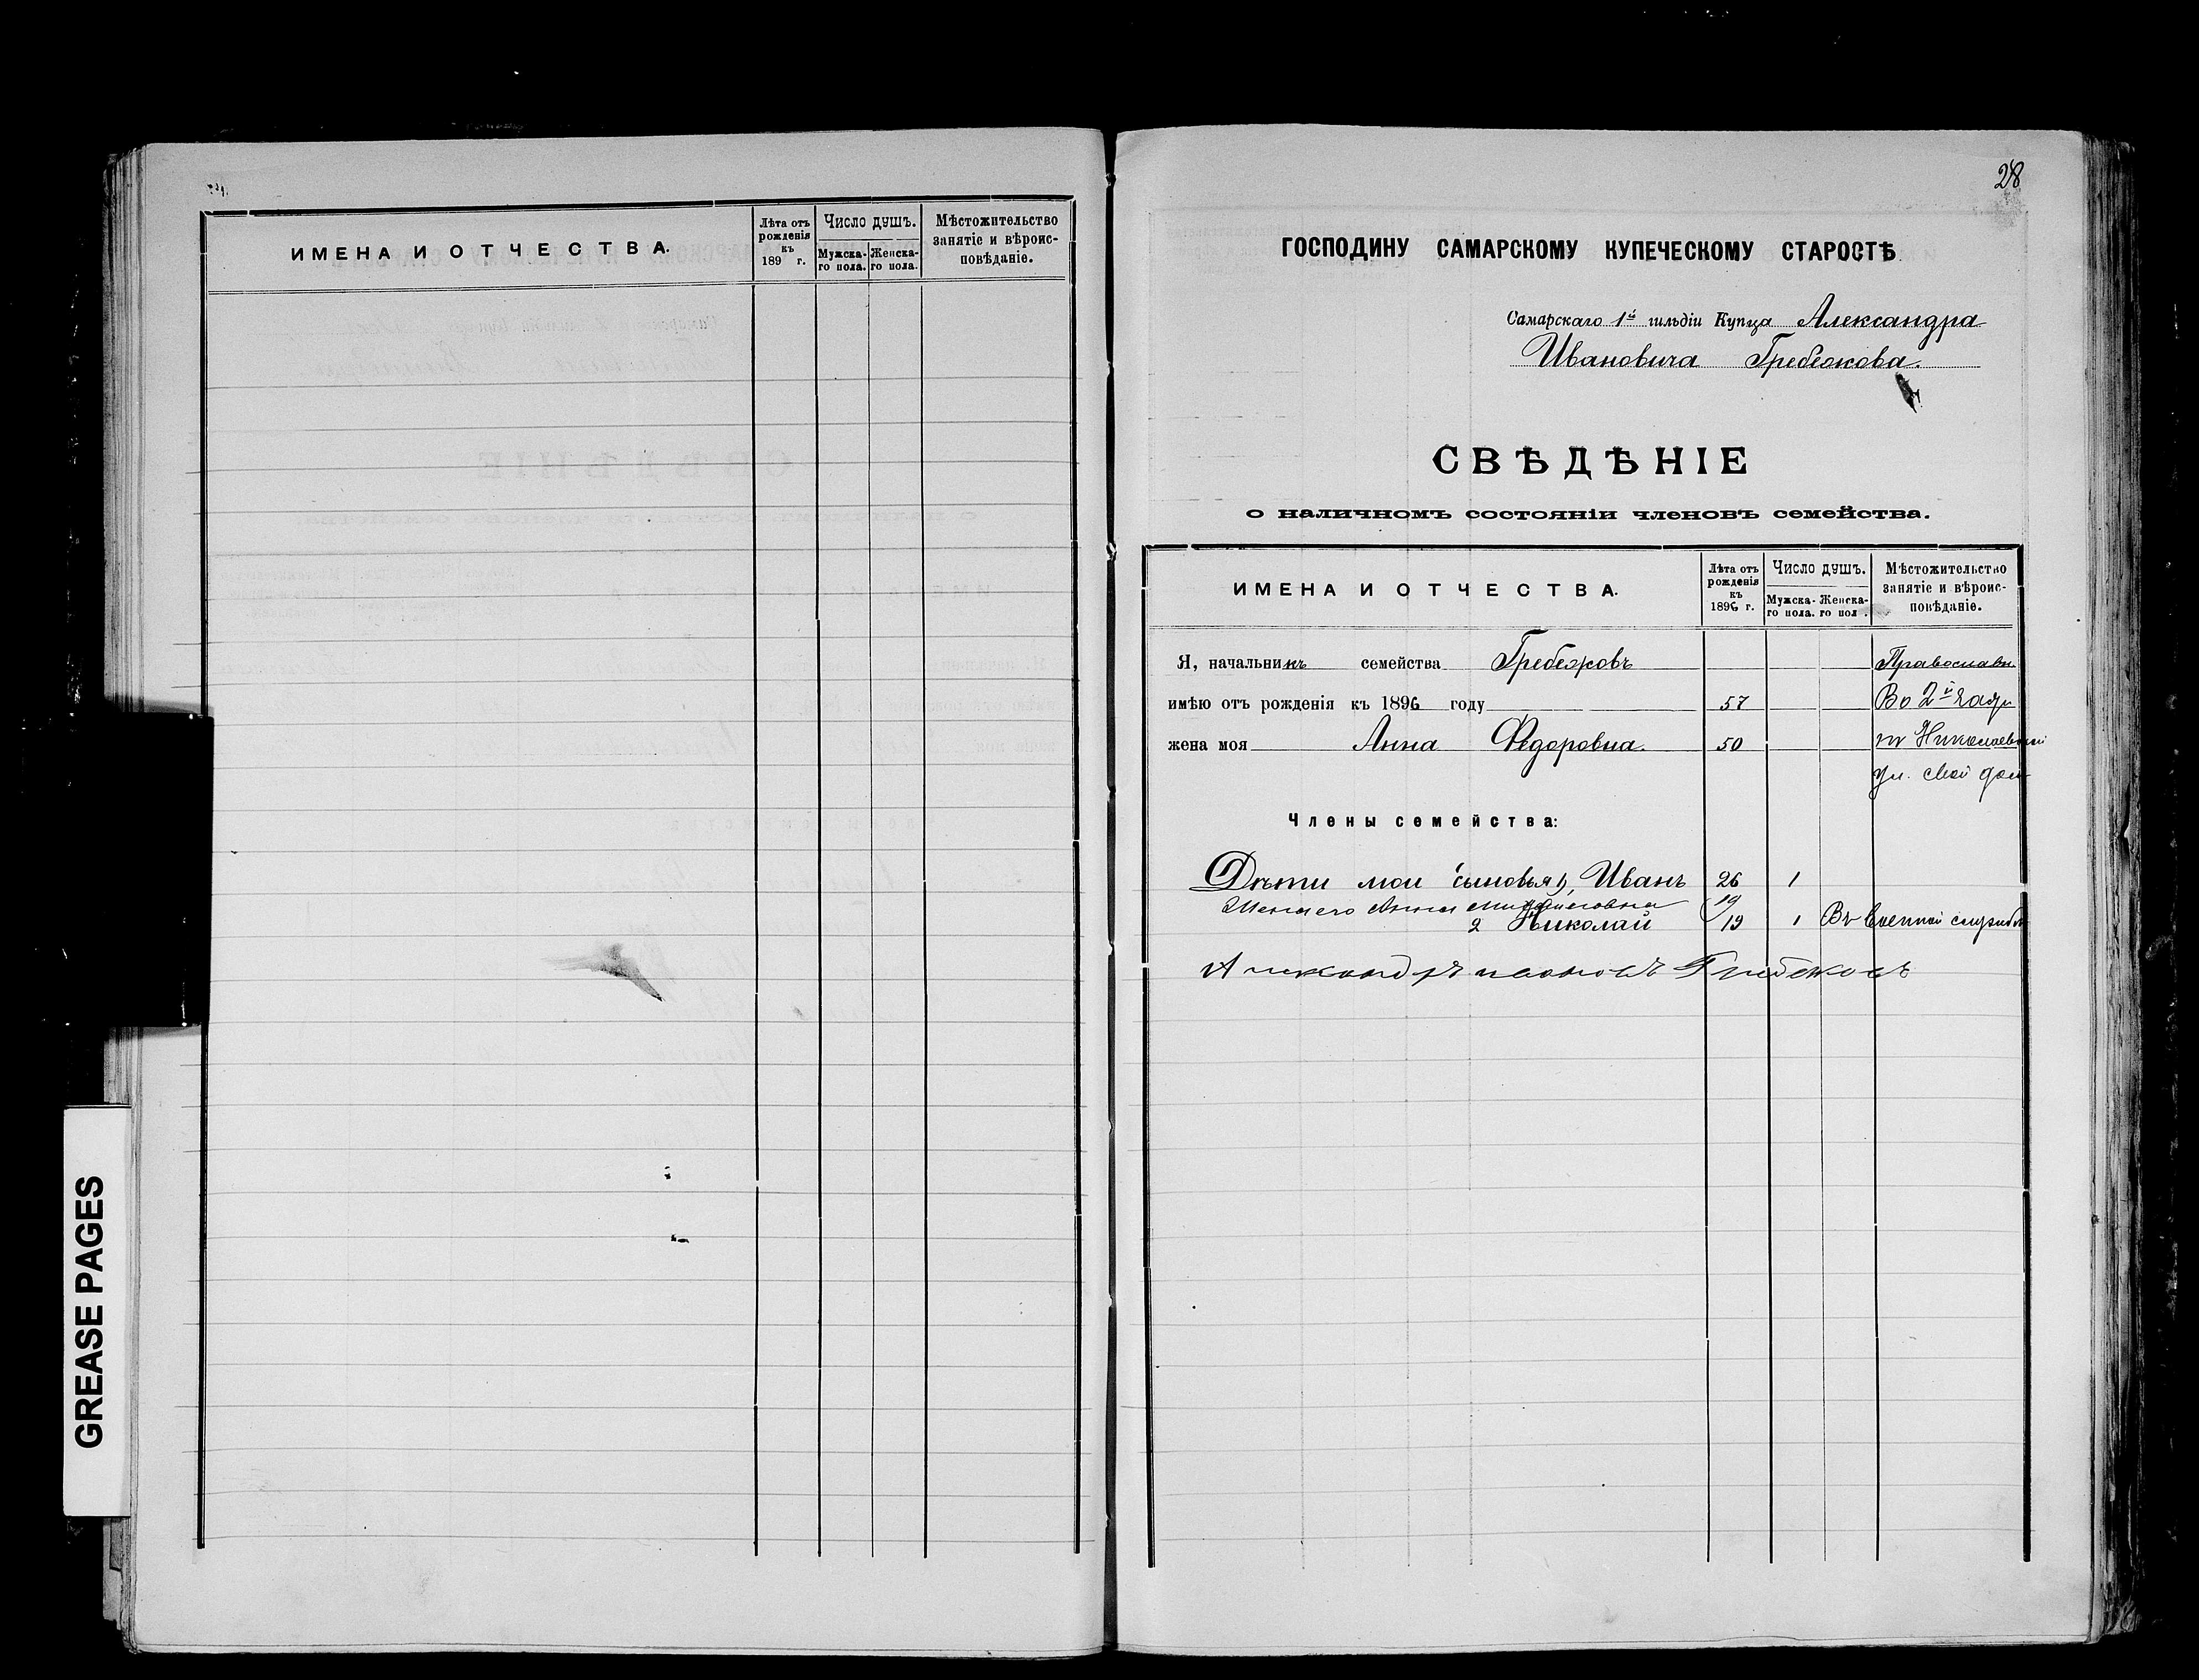 ИМЕНА И ОТЧЕСТВА.
Лѣта отъ рожденія къ 189 г.
Число душъ.
Мужска-го пола.
Женска-го пола.
Мѣстожительство занятіе и вѣроис-повѣданіе.
GREASE PAGES
28
ГОСПОДИНУ САМАРСКОМУ КУПЕЧЕСКОМУ СТАРОСТѢ
Самарскаго 1й гильдіи Купца Александра
Ивановича Гребежкова.
СВѢДѢНІЕ
о наличномъ состояніи членовъ семейства.
ИМЕНА И ОТЧЕСТВА.
Лѣта отъ рожденія къ 1896 г.
Число душъ.
Мужска-го пола.
Женска-го пол .
Мѣстожительство занятіе и вѣроис-повѣданіе.
Я, начальникъ семейства Гребежковъ Православн.
имѣю отъ рожденія къ 1896 году 57 Во 2й части
жена моя Анна Федоровна. 50 по Николаевской
ул. свой домъ
Члены семейства:
Дѣти мои сыновья 1, Иванъ 26 1
Жена его Анна 19
2 Николай 19 1 Въ Военной службѣ
Александръ Ивановъ Гребежковъ